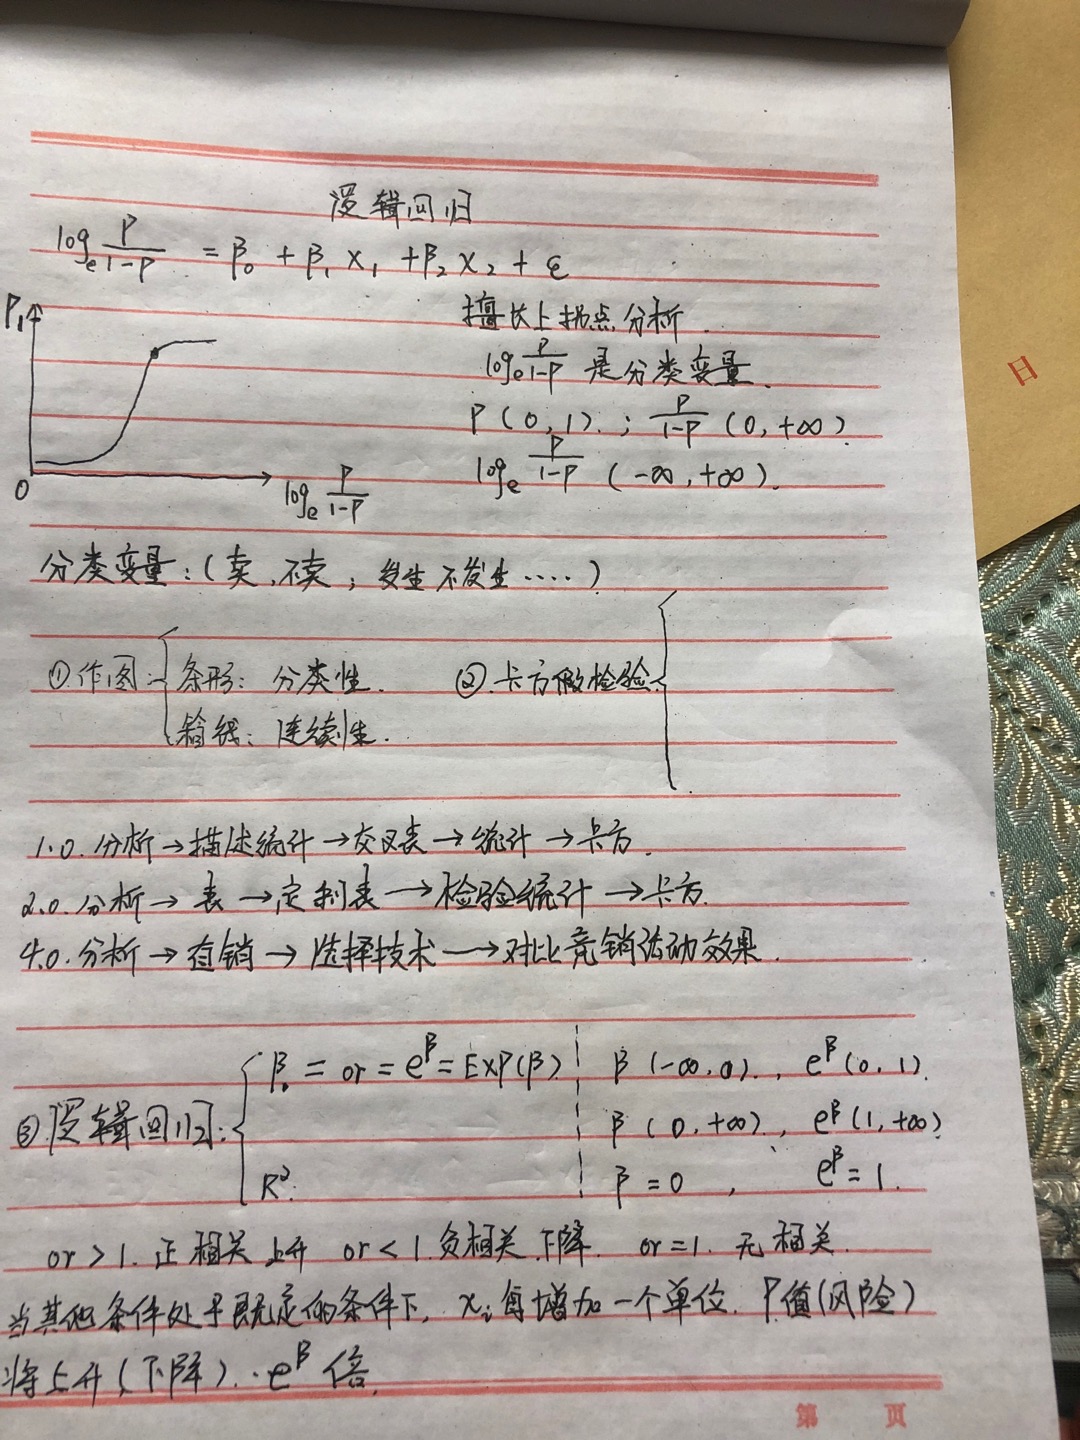 逻辑回归
logₑ P/(1-P) = β₀ + β₁ x₁ + β₂ x₂ + ε
P₁
擅长上拐点分析.
logₑ P/(1-P) 是分类变量.
P (0, 1). ; P/(1-P) (0, +∞).
logₑ P/(1-P) (-∞, +∞).
0
logₑ P/(1-P)
分类变量:(卖,不卖;发生不发生.....)
①作图: 条形: 分类性.
箱线: 连续性.
②.卡方假检验
1.0.分析→描述统计→交叉表→统计→卡方.
2.0.分析→表→定制表→检验统计→卡方.
4.0.分析→直销→选择技术→对比竞销活动效果.
③.逻辑回归: β. = or = e^β = EXP(β).
R².
β (-∞, 0)., e^β (0, 1).
β (0, +∞)., e^β (1, +∞).
β = 0 , e^β = 1.
or > 1. 正相关 上升 or < 1. 负相关.下降. or = 1. 无相关.
当其他条件处于既定的条件下, xᵢ每增加一个单位. P值(风险)
将上升(下降)..e^β 倍.
第 页
日